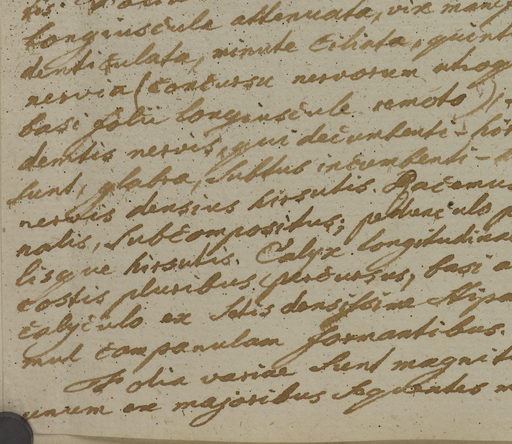 longiuscule attenuata, vix
denticulata, minute ciliata,
nervia (concursu nervorum
basi folii longiuscule remoto),
demtis nervis, qui decumbenti-
sunt, glabra, subtus incumbenti-
nervis densius hirsutis. Racemus
nalis, subcompositus; pedunculo
lisque hirsutis. Calyx longitudina
costis pluribus percursus, basi
calyculo ex setis densissime stipa
mul campanulam formantibus.
Folia variae sunt magnit
unum ex majoribus sequentes